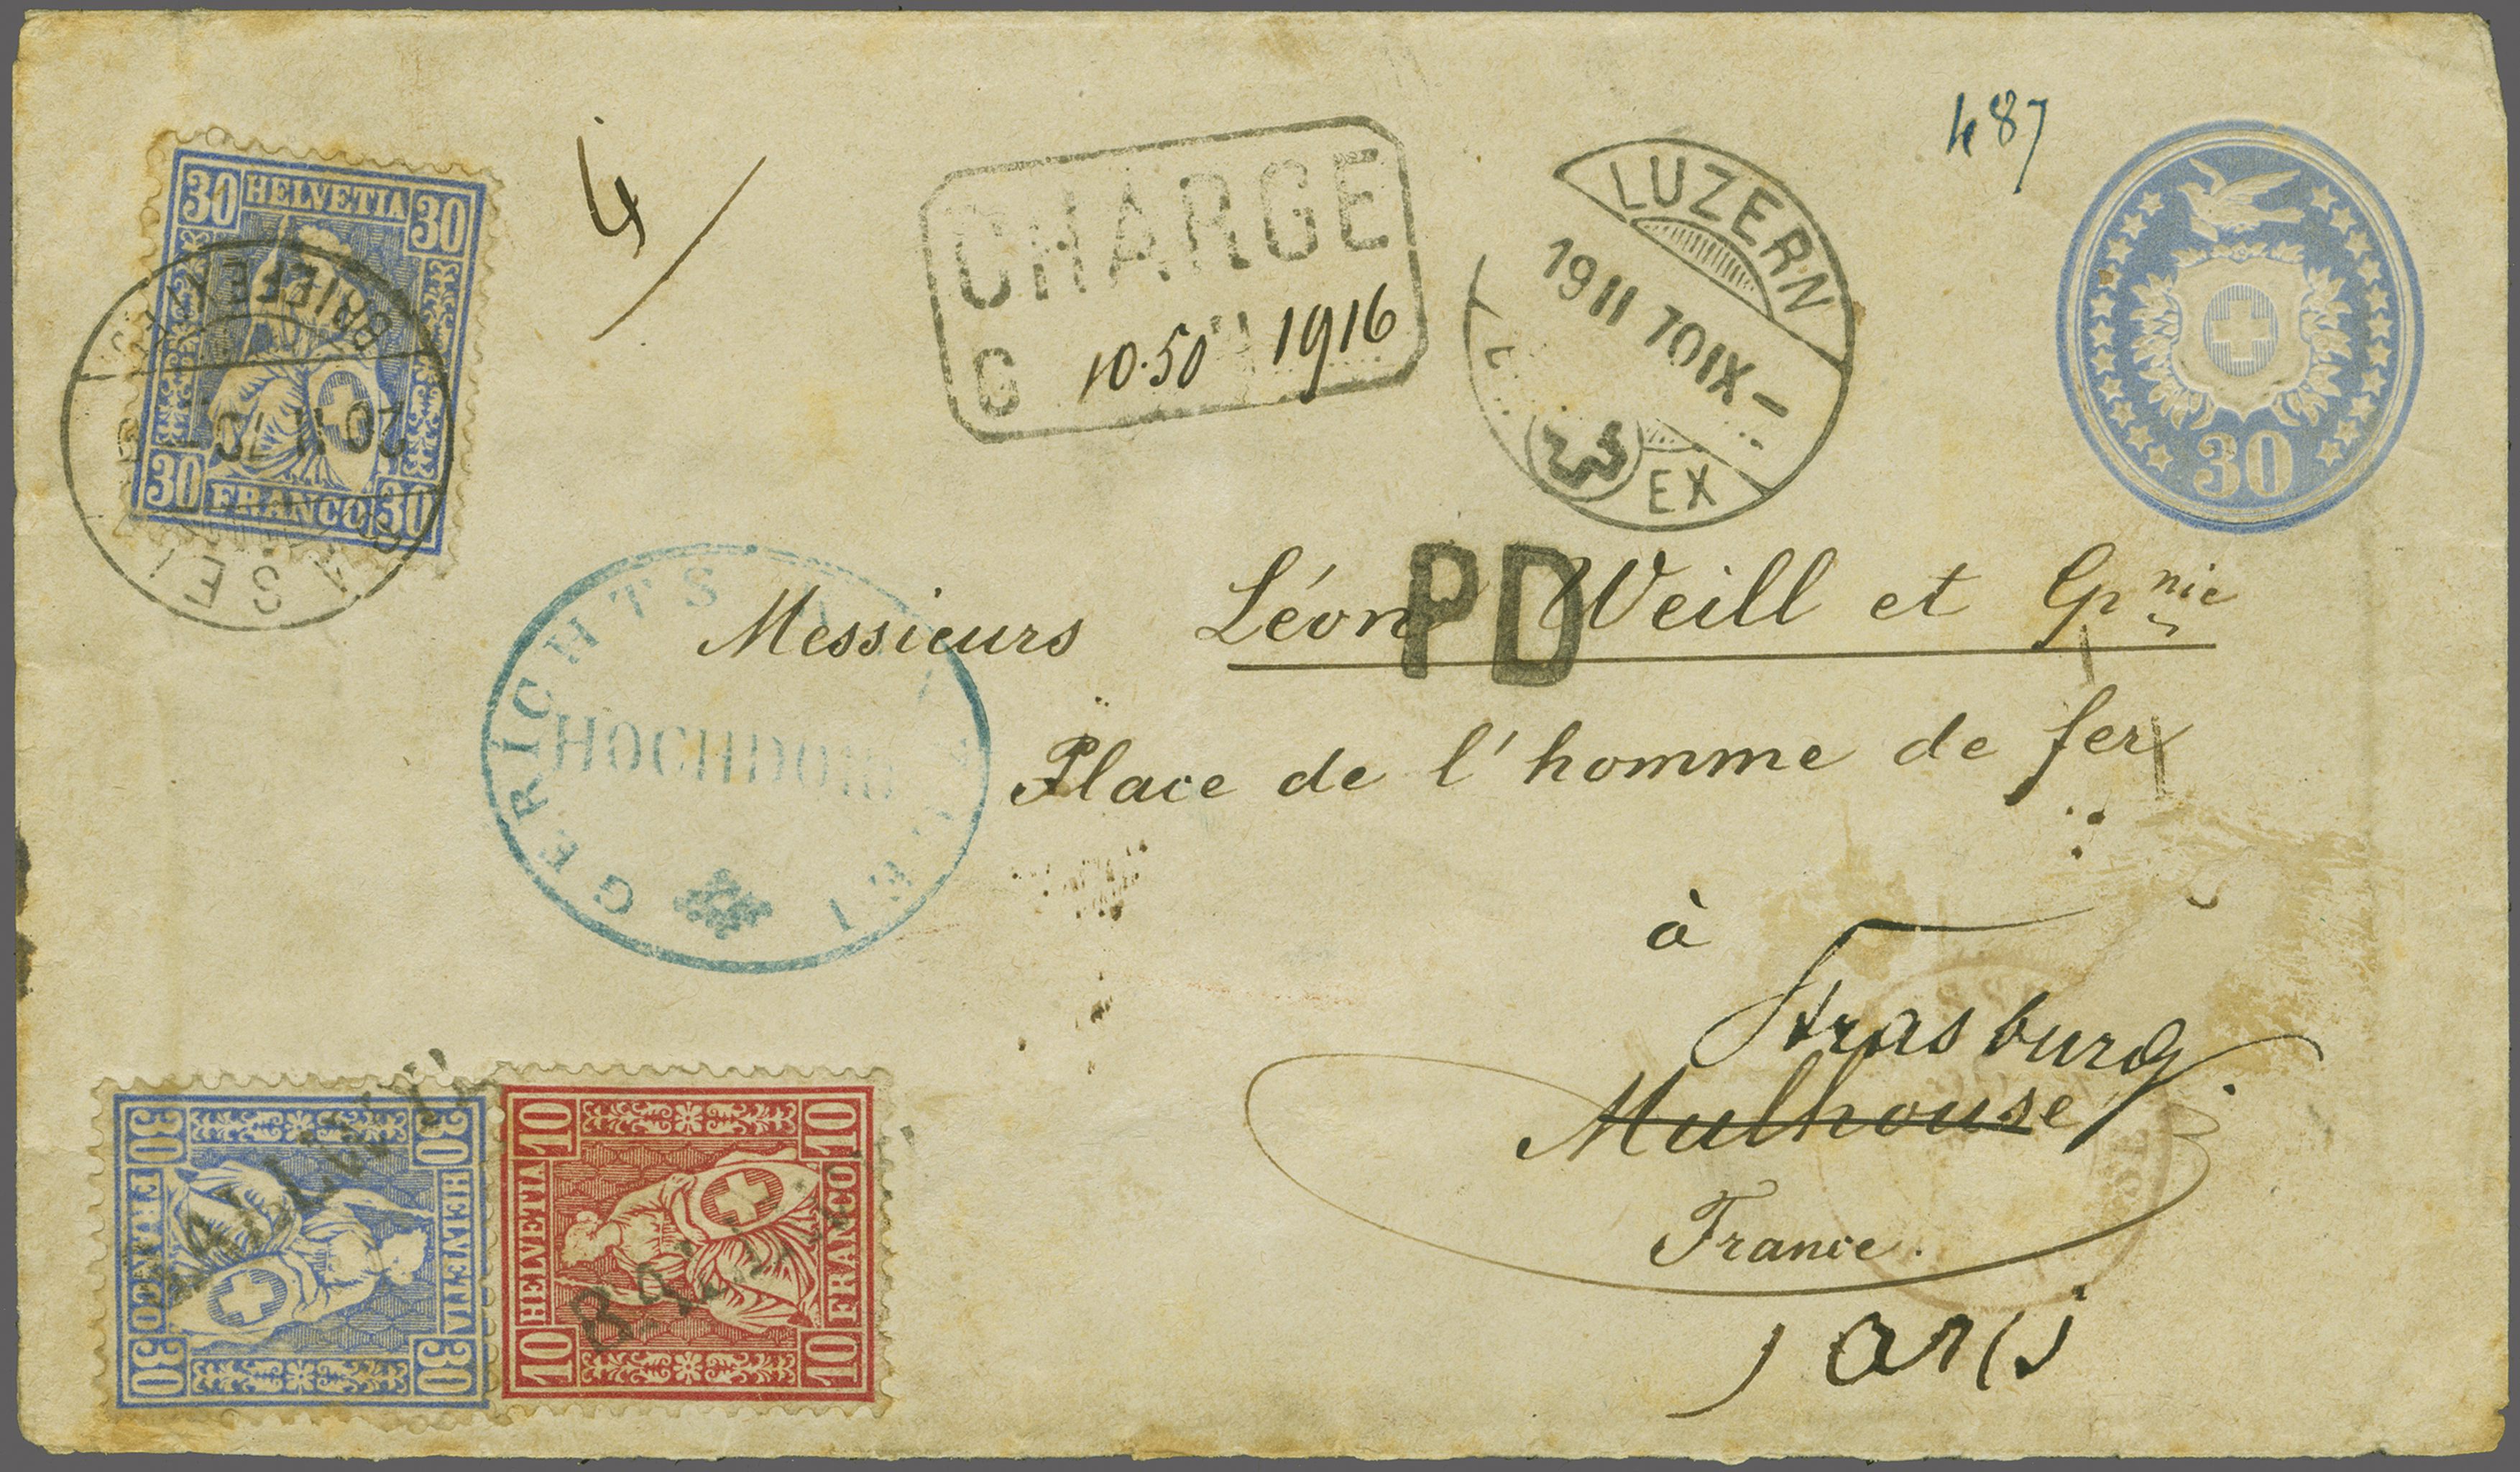 487
30 HELVETIA 30
30 FRANCO 30
BRIEFE
20 II 70
BASEL
4
CHARGE
G 10.50 1916
LUZERN
19 II 70 IX-
EX
30
PD
Messieurs Léon Weill et Cpnie
Place de l'homme de fer
à
Strasburg
Mulhouse
France.
Paris
GERICHTS
HOCHDORF
30 HELVETIA 30
30 FRANCO 30
BALLWYL
10 HELVETIA 10
10 FRANCO 10
BALLWYL